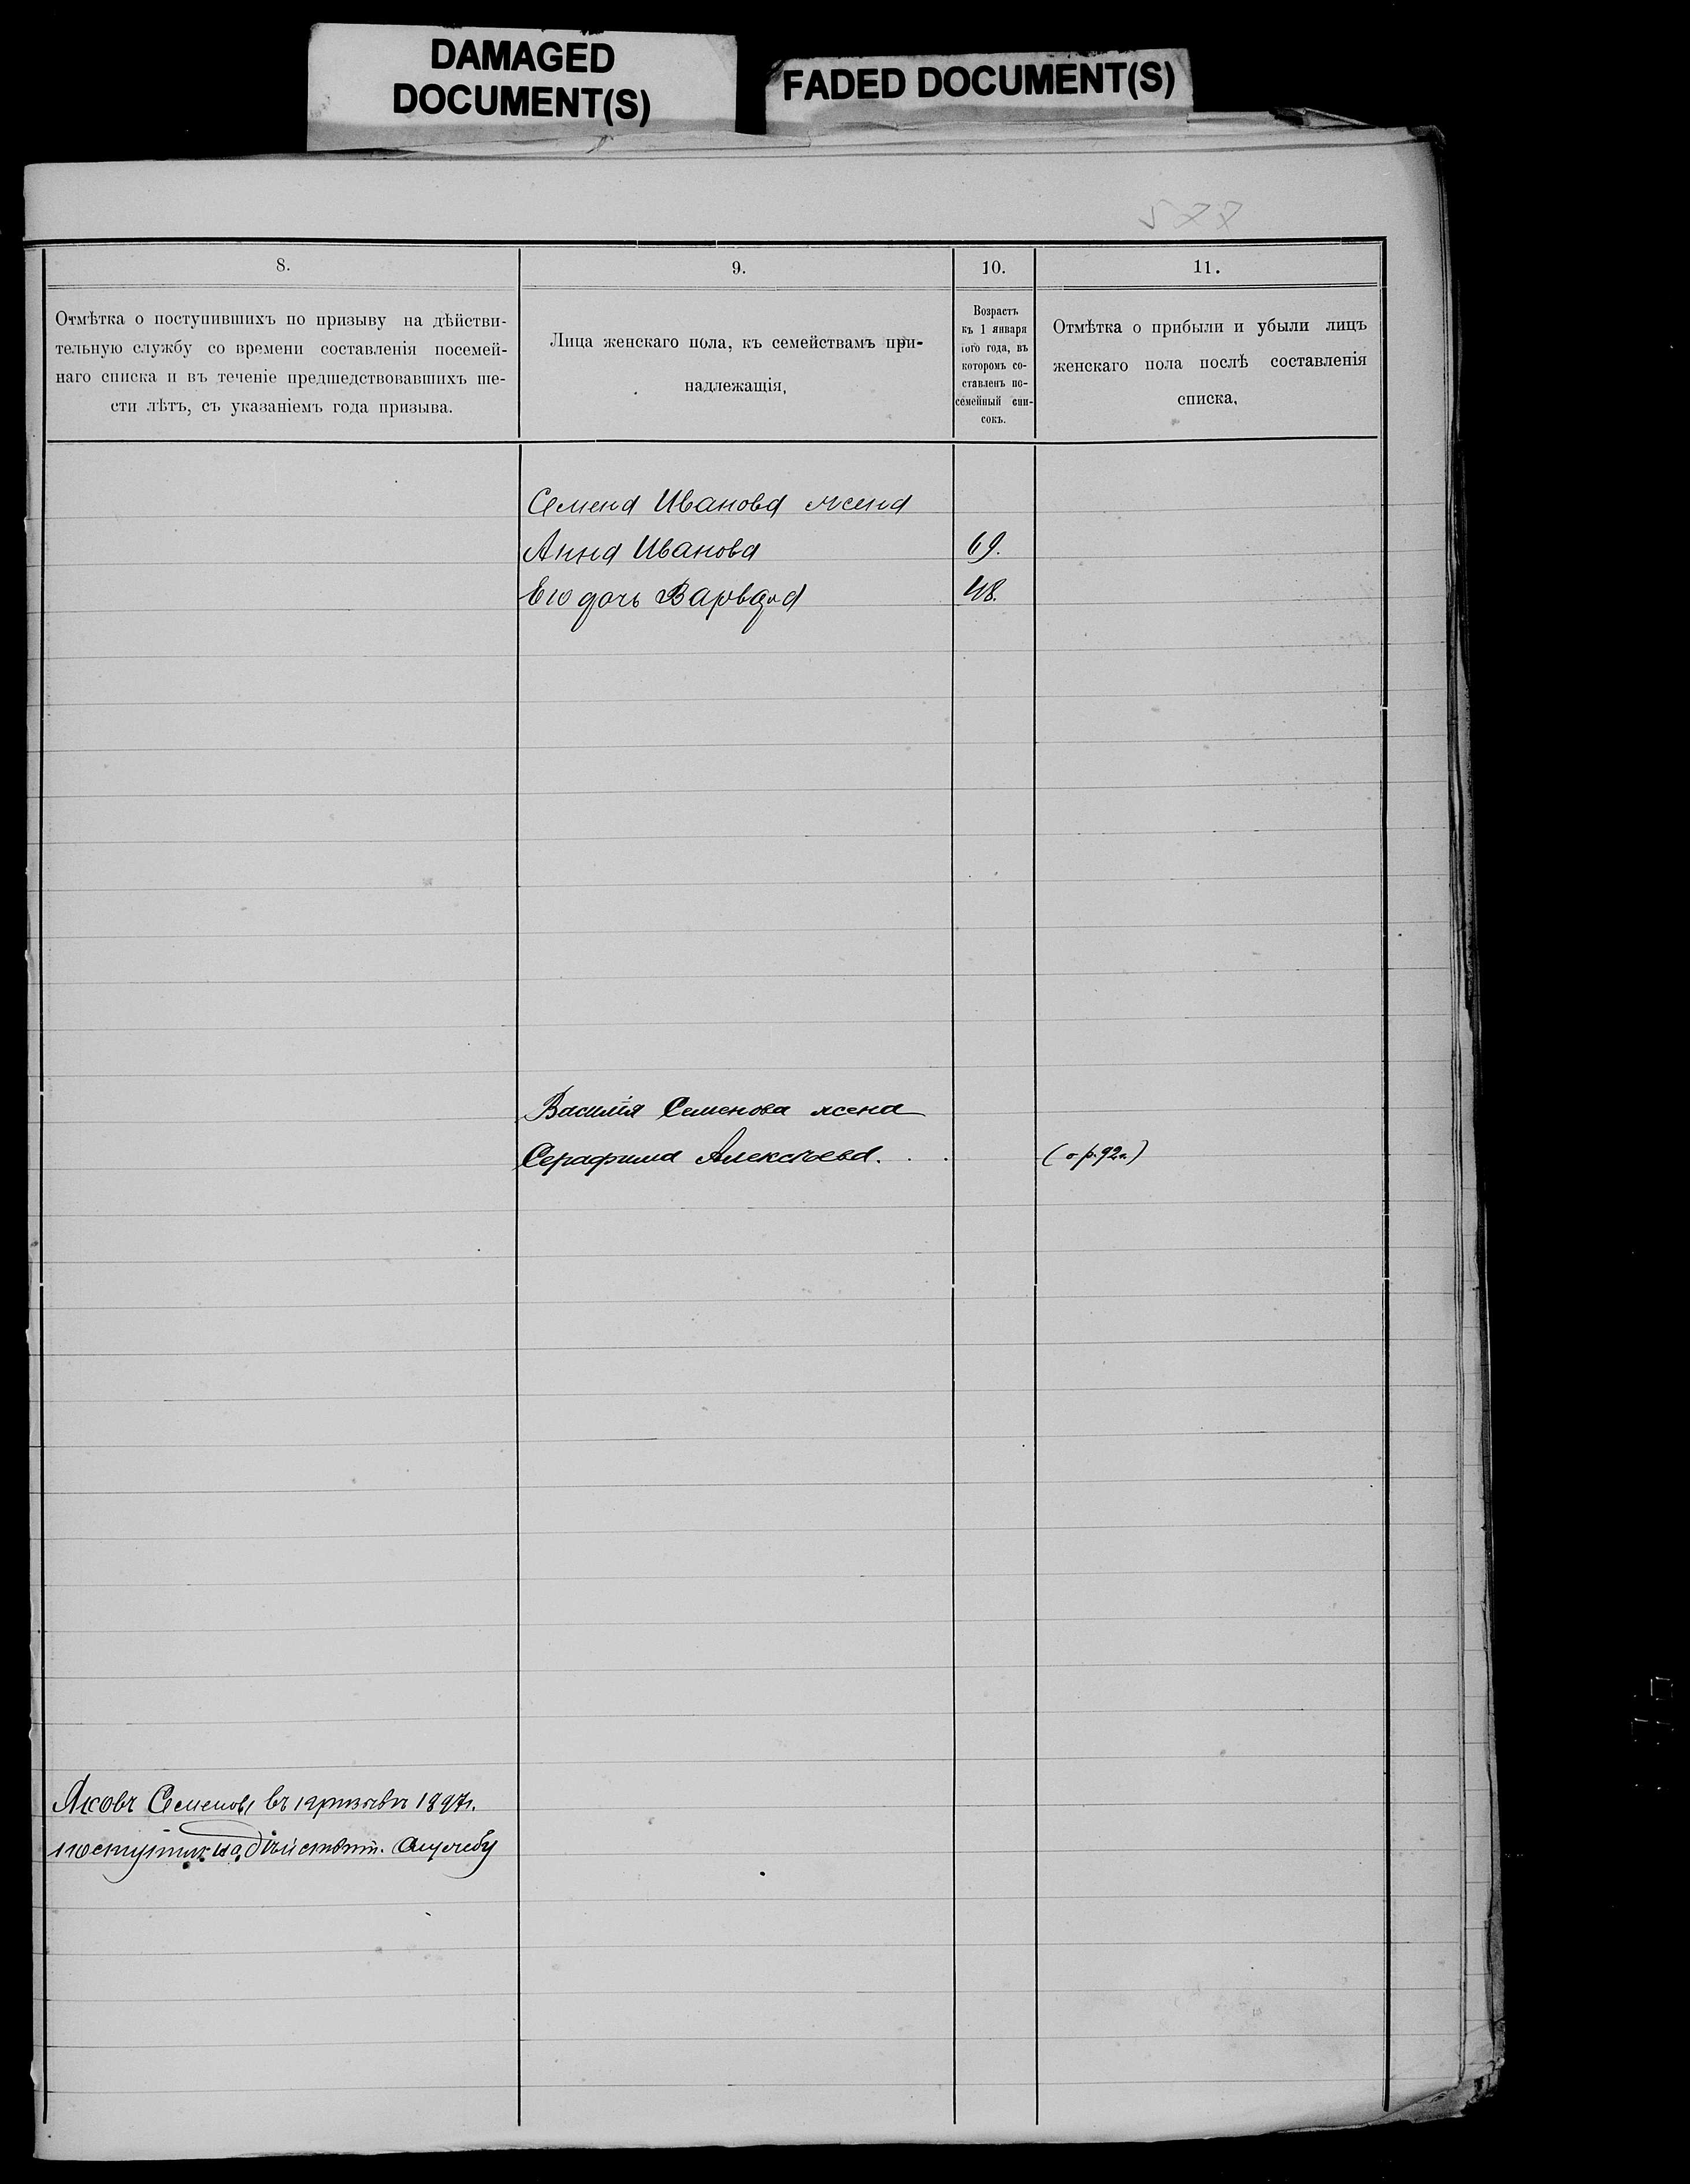 DAMAGED
DOCUMENT(S)
FADED DOCUMENT(S)
577
8.
Отмѣтка о поступившихъ по призыву на дѣйстви-
тельную службу со времени составленія посемей-
наго списка и въ теченіе предшедствовавшихъ ше-
сти лѣтъ, съ указаніемъ года призыва.
9.
Лица женскаго пола, къ семействамъ при-
надлежащія,
10.
Возрастъ
къ 1 января
того года, въ
которомъ со-
ставленъ по-
семейный спи-
сокъ.
11.
Отмѣтка о прибыли и убыли лицъ
женскаго пола послѣ составленія
списка,
Семена Иванова жена
Анна Иванова 69.
Ею дочь Варвара 48.
Василія Семенова жена
Серафима Алексѣева. (о р. 92 г.)
Яковъ Семеновъ въ призывъ 1897 г.
поступилъ на дѣйствит. службу